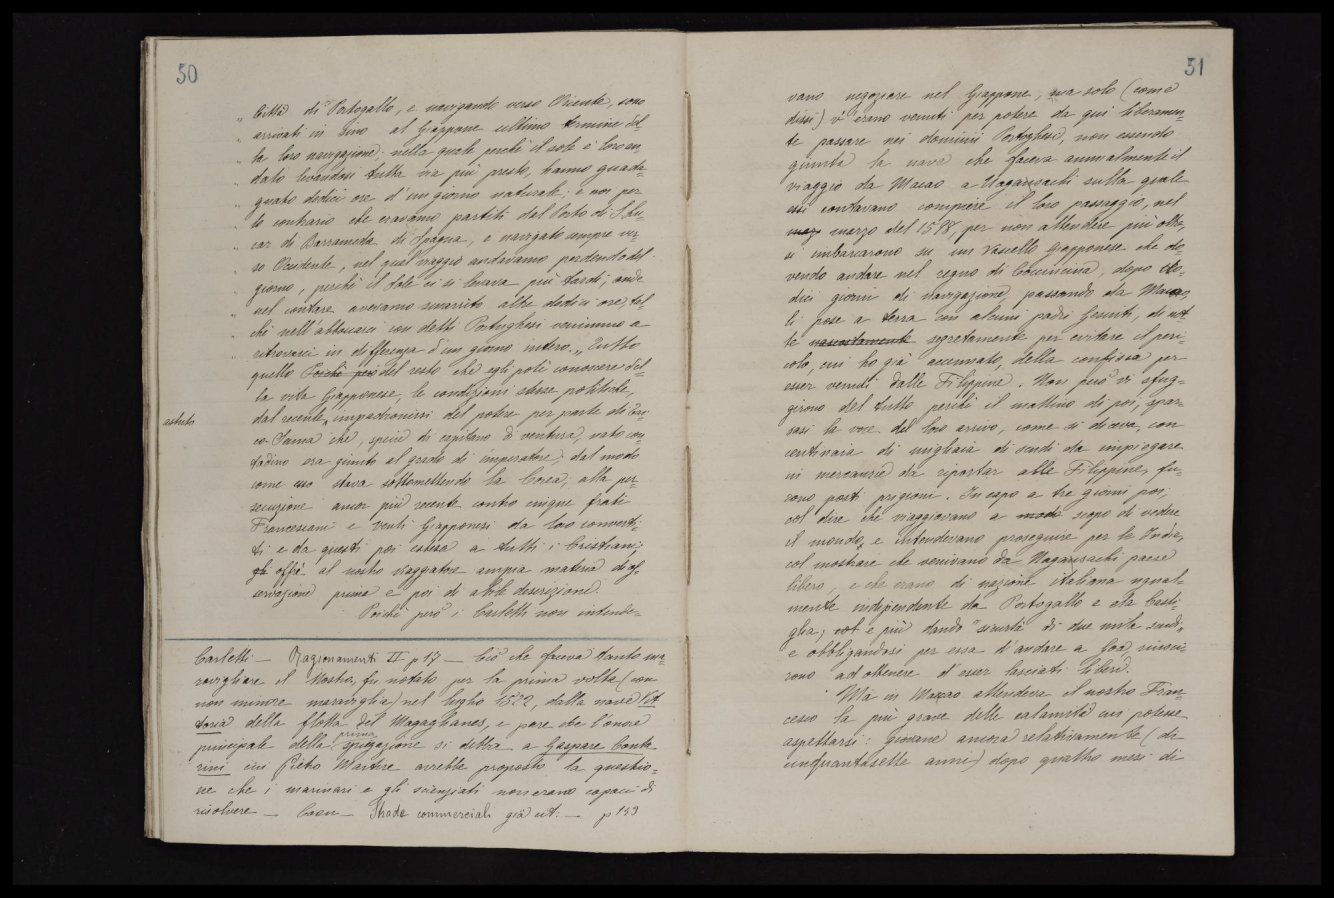 50
„ Città di Portogallo, e navigando verso Oriente, sono
„ arrivati in sino al Giappone ultimo termine del-
„ la loro navigazione; nella quale perchè il sole è loro an-
„ dato levandosi tutta via più presto, hanno guada-
„ gnato dodici ore d'un giorno naturale: e noi per
„ lo contrario che eravamo partiti dal Porto di S. Lu-
„ car di Barrameda di Spagna, e navigato sempre ver-
„ so Occidente, nel qual viaggio andavamo perdendo del
„ giorno, perchè il Sole ci si levava più tardi; onde
„ nel contare, avevamo smarrito altre dodici ore, tal
„ chè nell'abboccarci con detti Portughesi venimmo a
„ ritrovarci in differenza d'un giorno intero. „ Tutto
quello Perchè però del resto che egli potè conoscere del-
la vita Giapponese, le condizioni stesse politiche,
dal recente impadronirsi del potere per parte di Tai-
astuto
co-Sama che, specie di capitano di ventura, nato con-
tadino era giunto al grado di imperatore; dal modo
come esso stava sottomettendo la Corea; alla per-
secuzione ancor più recente contro cinque frati
Francescani e venti Giapponesi da loro converti-
ti e da questi poi estesa a tutti i Cristiani;
gli offrì al nostro viaggatore ampia materia di os-
servazione prima e poi di abile descrizione.
Poichè però i Carletti non intende-
Carletti — Ragionamenti II p 17 — Ciò che faceva tanto ma-
ravigliare il Nostro, fu notato per la prima volta (con
non minore maraviglia) nel luglio 1522, dalla nave Vit-
toria della flotta del Magaglianes, e pare che l'onore
principale della prima spiegazione si debba a Gaspare Conta-
rini cui Pietro Martire avrebbe proposto la questio-
ne che i marinari e gli scienziati non erano capaci di
risolvere — Coen — Strade commerciali già cit: — p 153
51
vano negoziare nel Giappone, ma solo (come
dissi) v'erano venuti per potere da qui liberamen-
te passare nei dominii Portoghesi, non essendo
giunta la nave che faceva annualmente il
viaggio da Macao a Nagansachi sulla quale
essi contavano compiere il loro passaggio, nel
marz marzo del 1598, per non attendere più oltre,
si imbarcarono su un Vascello Giapponese che do-
vendo andare nel regno di Coccincina, dopo do-
dici giorni di navigazione, passando da Macao,
li pose a terra con alcuni padri Gesuiti, di not
te nascostamente segretamente per evitare il peri-
colo, cui ho già accennato, della confisca per
esser venuti dalle Filippine. Non però vi sfug-
girono del tutto perchè il mattino di poi, spar-
sasi la voce del loro arrivo, come si diceva, con
centinaia di migliaia di scudi da impiegare
in mercanzie da riportar alle Filippine, fu-
rono posti prigioni. In capo a tre giorni poi,
col dire che viaggiavano a modo scopo di vedere
il mondo, e intendevano proseguire per le Indie,
col mostrare che venivano da Nagansachi paese
libero, e che erano di nazione italiana ugual-
mente indipendente da Portogallo e da Casti-
glia; col e più dando "sicurtà di due mila scudi„
e obbligandosi per essa d'andare a Goa, riusci-
rono ad ottenere d'esser lasciati liberi.
Ma in Macao attendeva il nostro Fran-
cesco la più grave delle calamità cui potesse
aspettarsi: giovane ancora relativamente (di
cinquantasette anni) dopo quattro mesi di